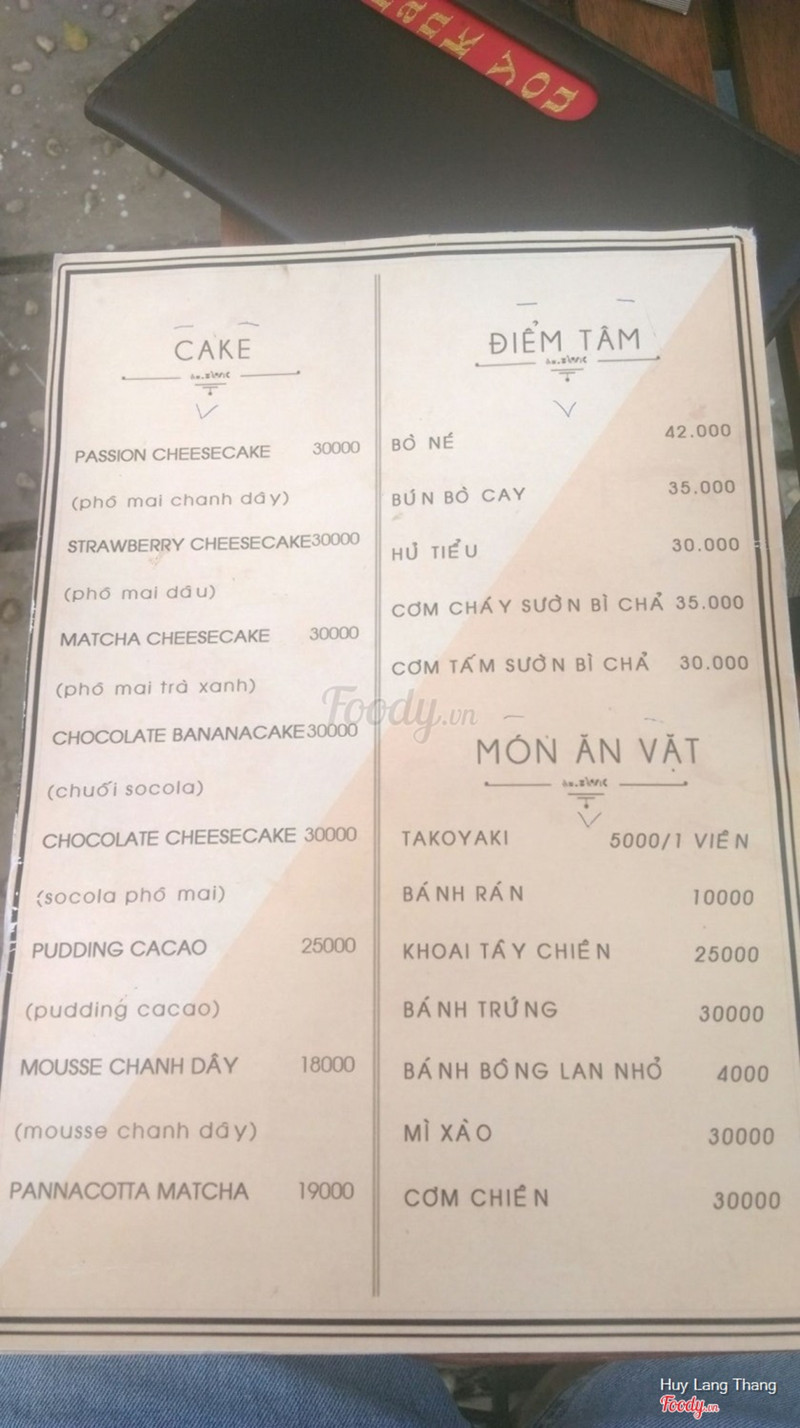 Thank you
CAKE
PASSION CHEESECAKE 30000
(phô mai chanh dây)
STRAWBERRY CHEESECAKE 30000
(phô mai dâu)
MATCHA CHEESECAKE 30000
(phô mai trà xanh)
CHOCOLATE BANANACAKE 30000
(chuối socola)
CHOCOLATE CHEESECAKE 30000
(socola phô mai)
PUDDING CACAO 25000
(pudding cacao)
MOUSSE CHANH DÂY 18000
(mousse chanh dây)
PANNACOTTA MATCHA 19000
ĐIỂM TÂM
BÒ NÉ 42.000
BÚN BÒ CAY 35.000
HỦ TIỂU 30.000
CƠM CHÁY SƯỜN BÌ CHẢ 35.000
CƠM TẤM SƯỜN BÌ CHẢ 30.000
MÓN ĂN VẶT
TAKOYAKI 5000/1 VIÊN
BÁNH RÁN 10000
KHOAI TÂY CHIÊN 25000
BÁNH TRỨNG 30000
BÁNH BÔNG LAN NHỎ 4000
MÌ XÀO 30000
CƠM CHIÊN 30000
Foody.vn
Huy Lang Thang
Foody.vn